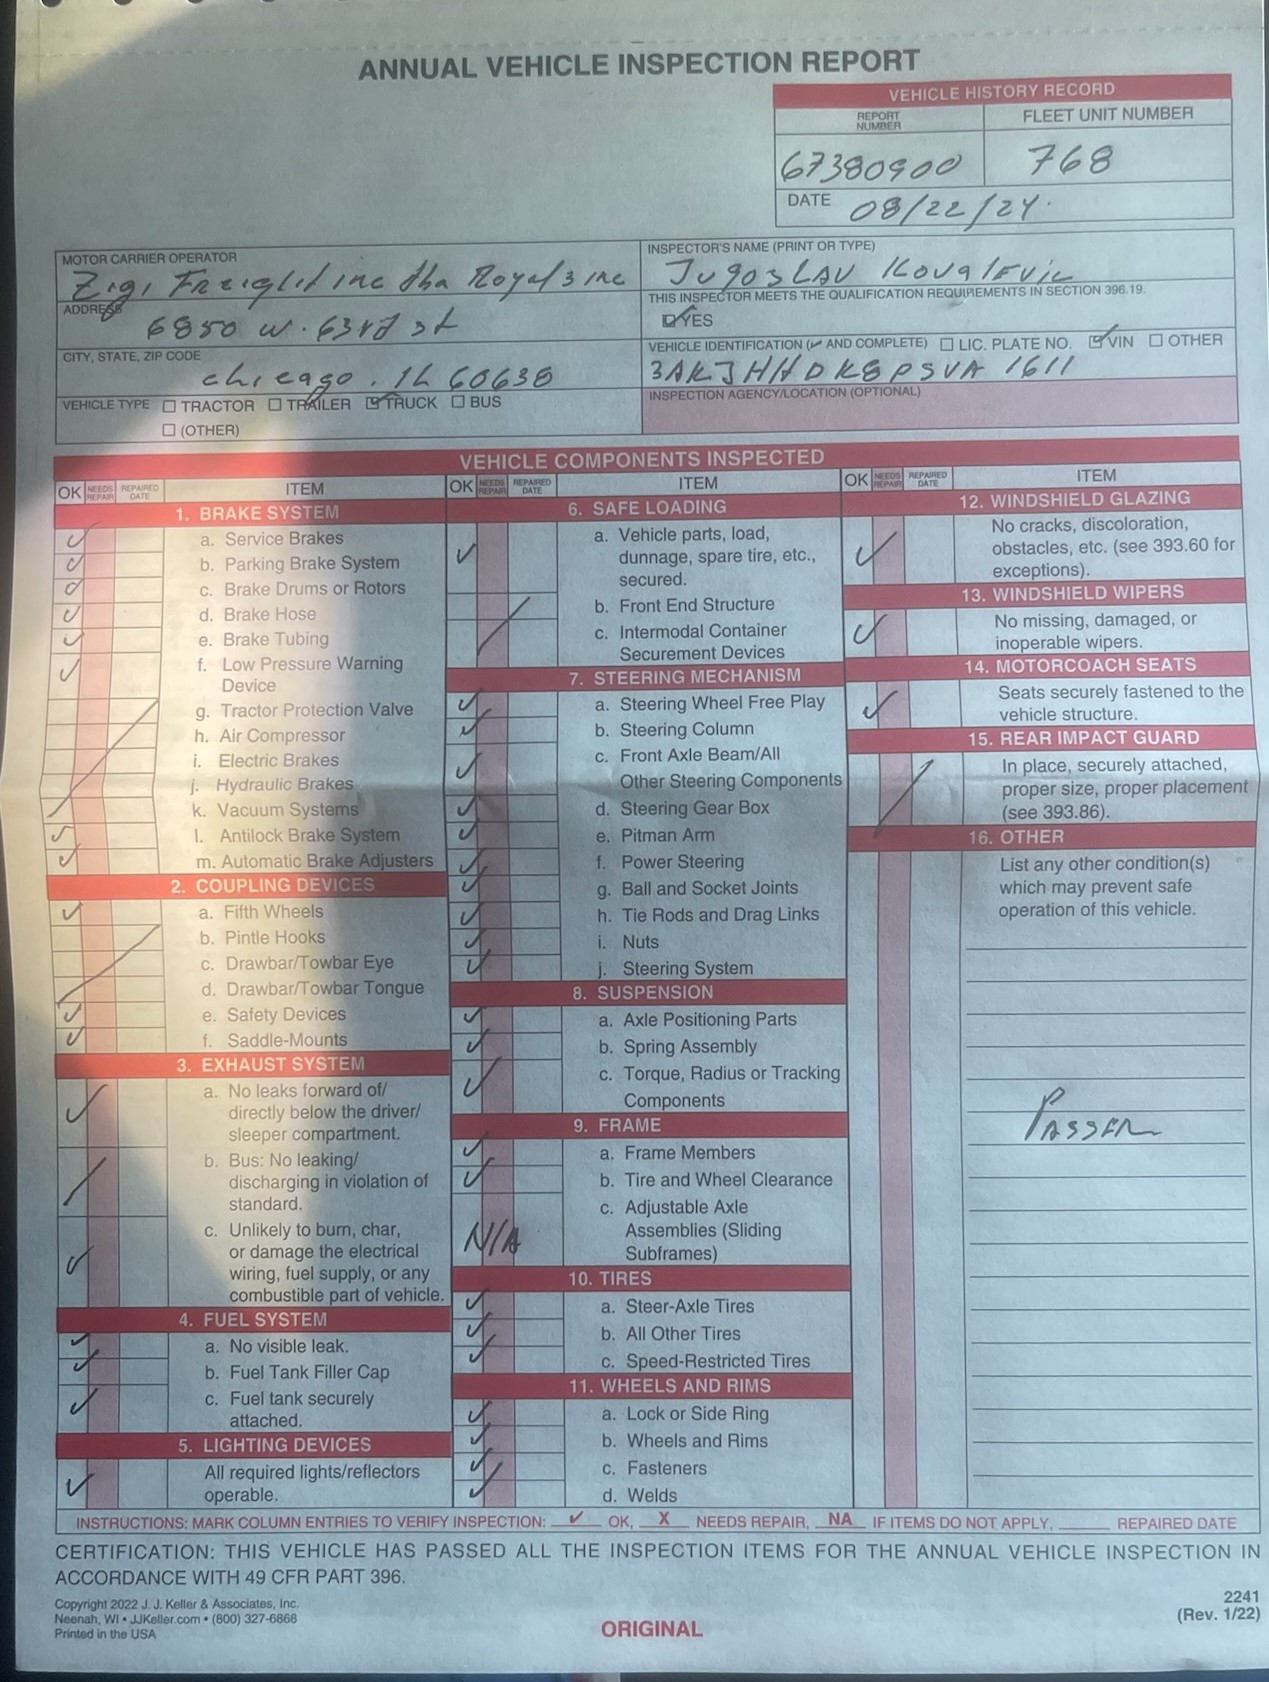 ANNUAL VEHICLE INSPECTION REPORT
VEHICLE HISTORY RECORD
REPORT NUMBER
FLEET UNIT NUMBER
67380900
768
DATE 08/22/24.
MOTOR CARRIER OPERATOR
Zigi Freight inc dba Royal3 inc
ADDRESS
6850 W. 63rd st
CITY, STATE, ZIP CODE
chicago, IL 60638
VEHICLE TYPE ☐ TRACTOR ☐ TRAILER ☑ TRUCK ☐ BUS
☐ (OTHER)
INSPECTOR'S NAME (PRINT OR TYPE)
JugosLAV KovalEvic
THIS INSPECTOR MEETS THE QUALIFICATION REQUIREMENTS IN SECTION 396.19.
☑ YES
VEHICLE IDENTIFICATION (✓ AND COMPLETE) ☐ LIC. PLATE NO. ☑ VIN ☐ OTHER
3AKJHHDK8PSVA1611
INSPECTION AGENCY/LOCATION (OPTIONAL)
VEHICLE COMPONENTS INSPECTED
OK NEEDS REPAIR REPAIRED DATE ITEM
1. BRAKE SYSTEM
✓ a. Service Brakes
✓ b. Parking Brake System
✓ c. Brake Drums or Rotors
✓ d. Brake Hose
✓ e. Brake Tubing
✓ f. Low Pressure Warning
Device
g. Tractor Protection Valve
h. Air Compressor
i. Electric Brakes
j. Hydraulic Brakes
k. Vacuum Systems
✓ l. Antilock Brake System
✓ m. Automatic Brake Adjusters
2. COUPLING DEVICES
✓ a. Fifth Wheels
b. Pintle Hooks
c. Drawbar/Towbar Eye
d. Drawbar/Towbar Tongue
✓ e. Safety Devices
✓ f. Saddle-Mounts
3. EXHAUST SYSTEM
✓ a. No leaks forward of/
directly below the driver/
sleeper compartment.
b. Bus: No leaking/
discharging in violation of
standard.
✓ c. Unlikely to burn, char,
or damage the electrical
wiring, fuel supply, or any
combustible part of vehicle.
4. FUEL SYSTEM
✓ a. No visible leak.
✓ b. Fuel Tank Filler Cap
✓ c. Fuel tank securely
attached.
5. LIGHTING DEVICES
✓ All required lights/reflectors
operable.
OK NEEDS REPAIR REPAIRED DATE ITEM
6. SAFE LOADING
✓ a. Vehicle parts, load,
dunnage, spare tire, etc.,
secured.
b. Front End Structure
c. Intermodal Container
Securement Devices
7. STEERING MECHANISM
✓ a. Steering Wheel Free Play
✓ b. Steering Column
✓ c. Front Axle Beam/All
Other Steering Components
✓ d. Steering Gear Box
✓ e. Pitman Arm
✓ f. Power Steering
✓ g. Ball and Socket Joints
✓ h. Tie Rods and Drag Links
✓ i. Nuts
✓ j. Steering System
8. SUSPENSION
✓ a. Axle Positioning Parts
✓ b. Spring Assembly
✓ c. Torque, Radius or Tracking
Components
9. FRAME
✓ a. Frame Members
✓ b. Tire and Wheel Clearance
N/A c. Adjustable Axle
Assemblies (Sliding
Subframes)
10. TIRES
✓ a. Steer-Axle Tires
✓ b. All Other Tires
✓ c. Speed-Restricted Tires
11. WHEELS AND RIMS
✓ a. Lock or Side Ring
✓ b. Wheels and Rims
✓ c. Fasteners
✓ d. Welds
OK NEEDS REPAIR REPAIRED DATE ITEM
12. WINDSHIELD GLAZING
✓ No cracks, discoloration,
obstacles, etc. (see 393.60 for
exceptions).
13. WINDSHIELD WIPERS
✓ No missing, damaged, or
inoperable wipers.
14. MOTORCOACH SEATS
✓ Seats securely fastened to the
vehicle structure.
15. REAR IMPACT GUARD
In place, securely attached,
proper size, proper placement
(see 393.86).
16. OTHER
List any other condition(s)
which may prevent safe
operation of this vehicle.
INSTRUCTIONS: MARK COLUMN ENTRIES TO VERIFY INSPECTION: ✓ OK, X NEEDS REPAIR, NA IF ITEMS DO NOT APPLY, ____ REPAIRED DATE
CERTIFICATION: THIS VEHICLE HAS PASSED ALL THE INSPECTION ITEMS FOR THE ANNUAL VEHICLE INSPECTION IN
ACCORDANCE WITH 49 CFR PART 396.
Copyright 2022 J. J. Keller & Associates, Inc.
Neenah, WI • JJKeller.com • (800) 327-6868
Printed in the USA
ORIGINAL
2241
(Rev. 1/22)